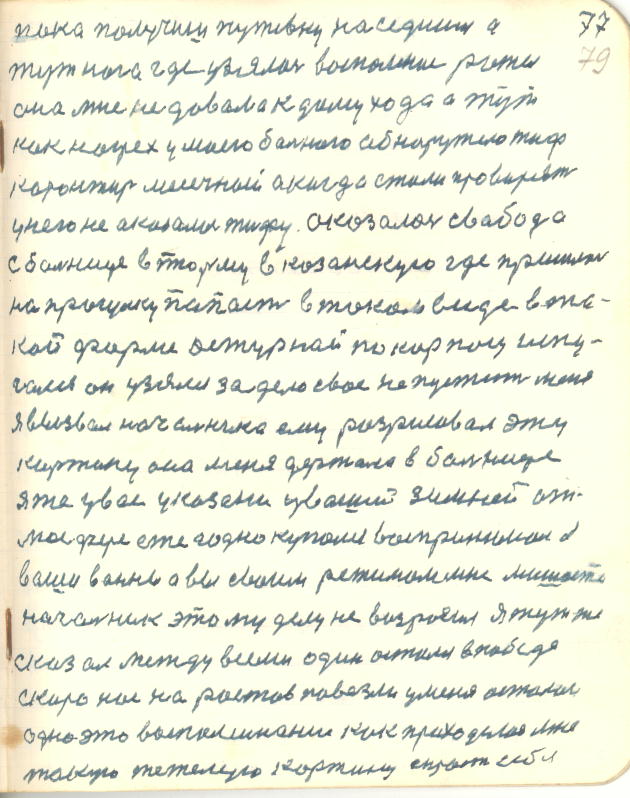 77
79
пока получиш путевку наседиш а
тут нога где узялос восполение рожи
она мне не довала к дому хода а тут
как на грех у моего балного абнаружело тиф
каронтир месечный а когда стали провирят
у него не аказалы тифу. оказалас свабода
с балнице в торму в козанскую где пришлос
на прогулку папаст в таком виде в та-
кой форме дежурнай по корпосу испу-
галса он узяли за дело свое не пустит меня
я вызвал началника ему розрисовал эту
картину она меня держала в балнице
я же у вас указани у вашей зимней ат-
мосфере ежегодно купалса воспринимал я
ваши ванны а вы своим режимом мне мишаете
началник этому делу не возрозил я тут же
сказал между всеми один осталса в победе
скоро нас на ростов повезли у меня осталос
одно это воспаминание как приходилос мне
такую тежелую картину спрост себя